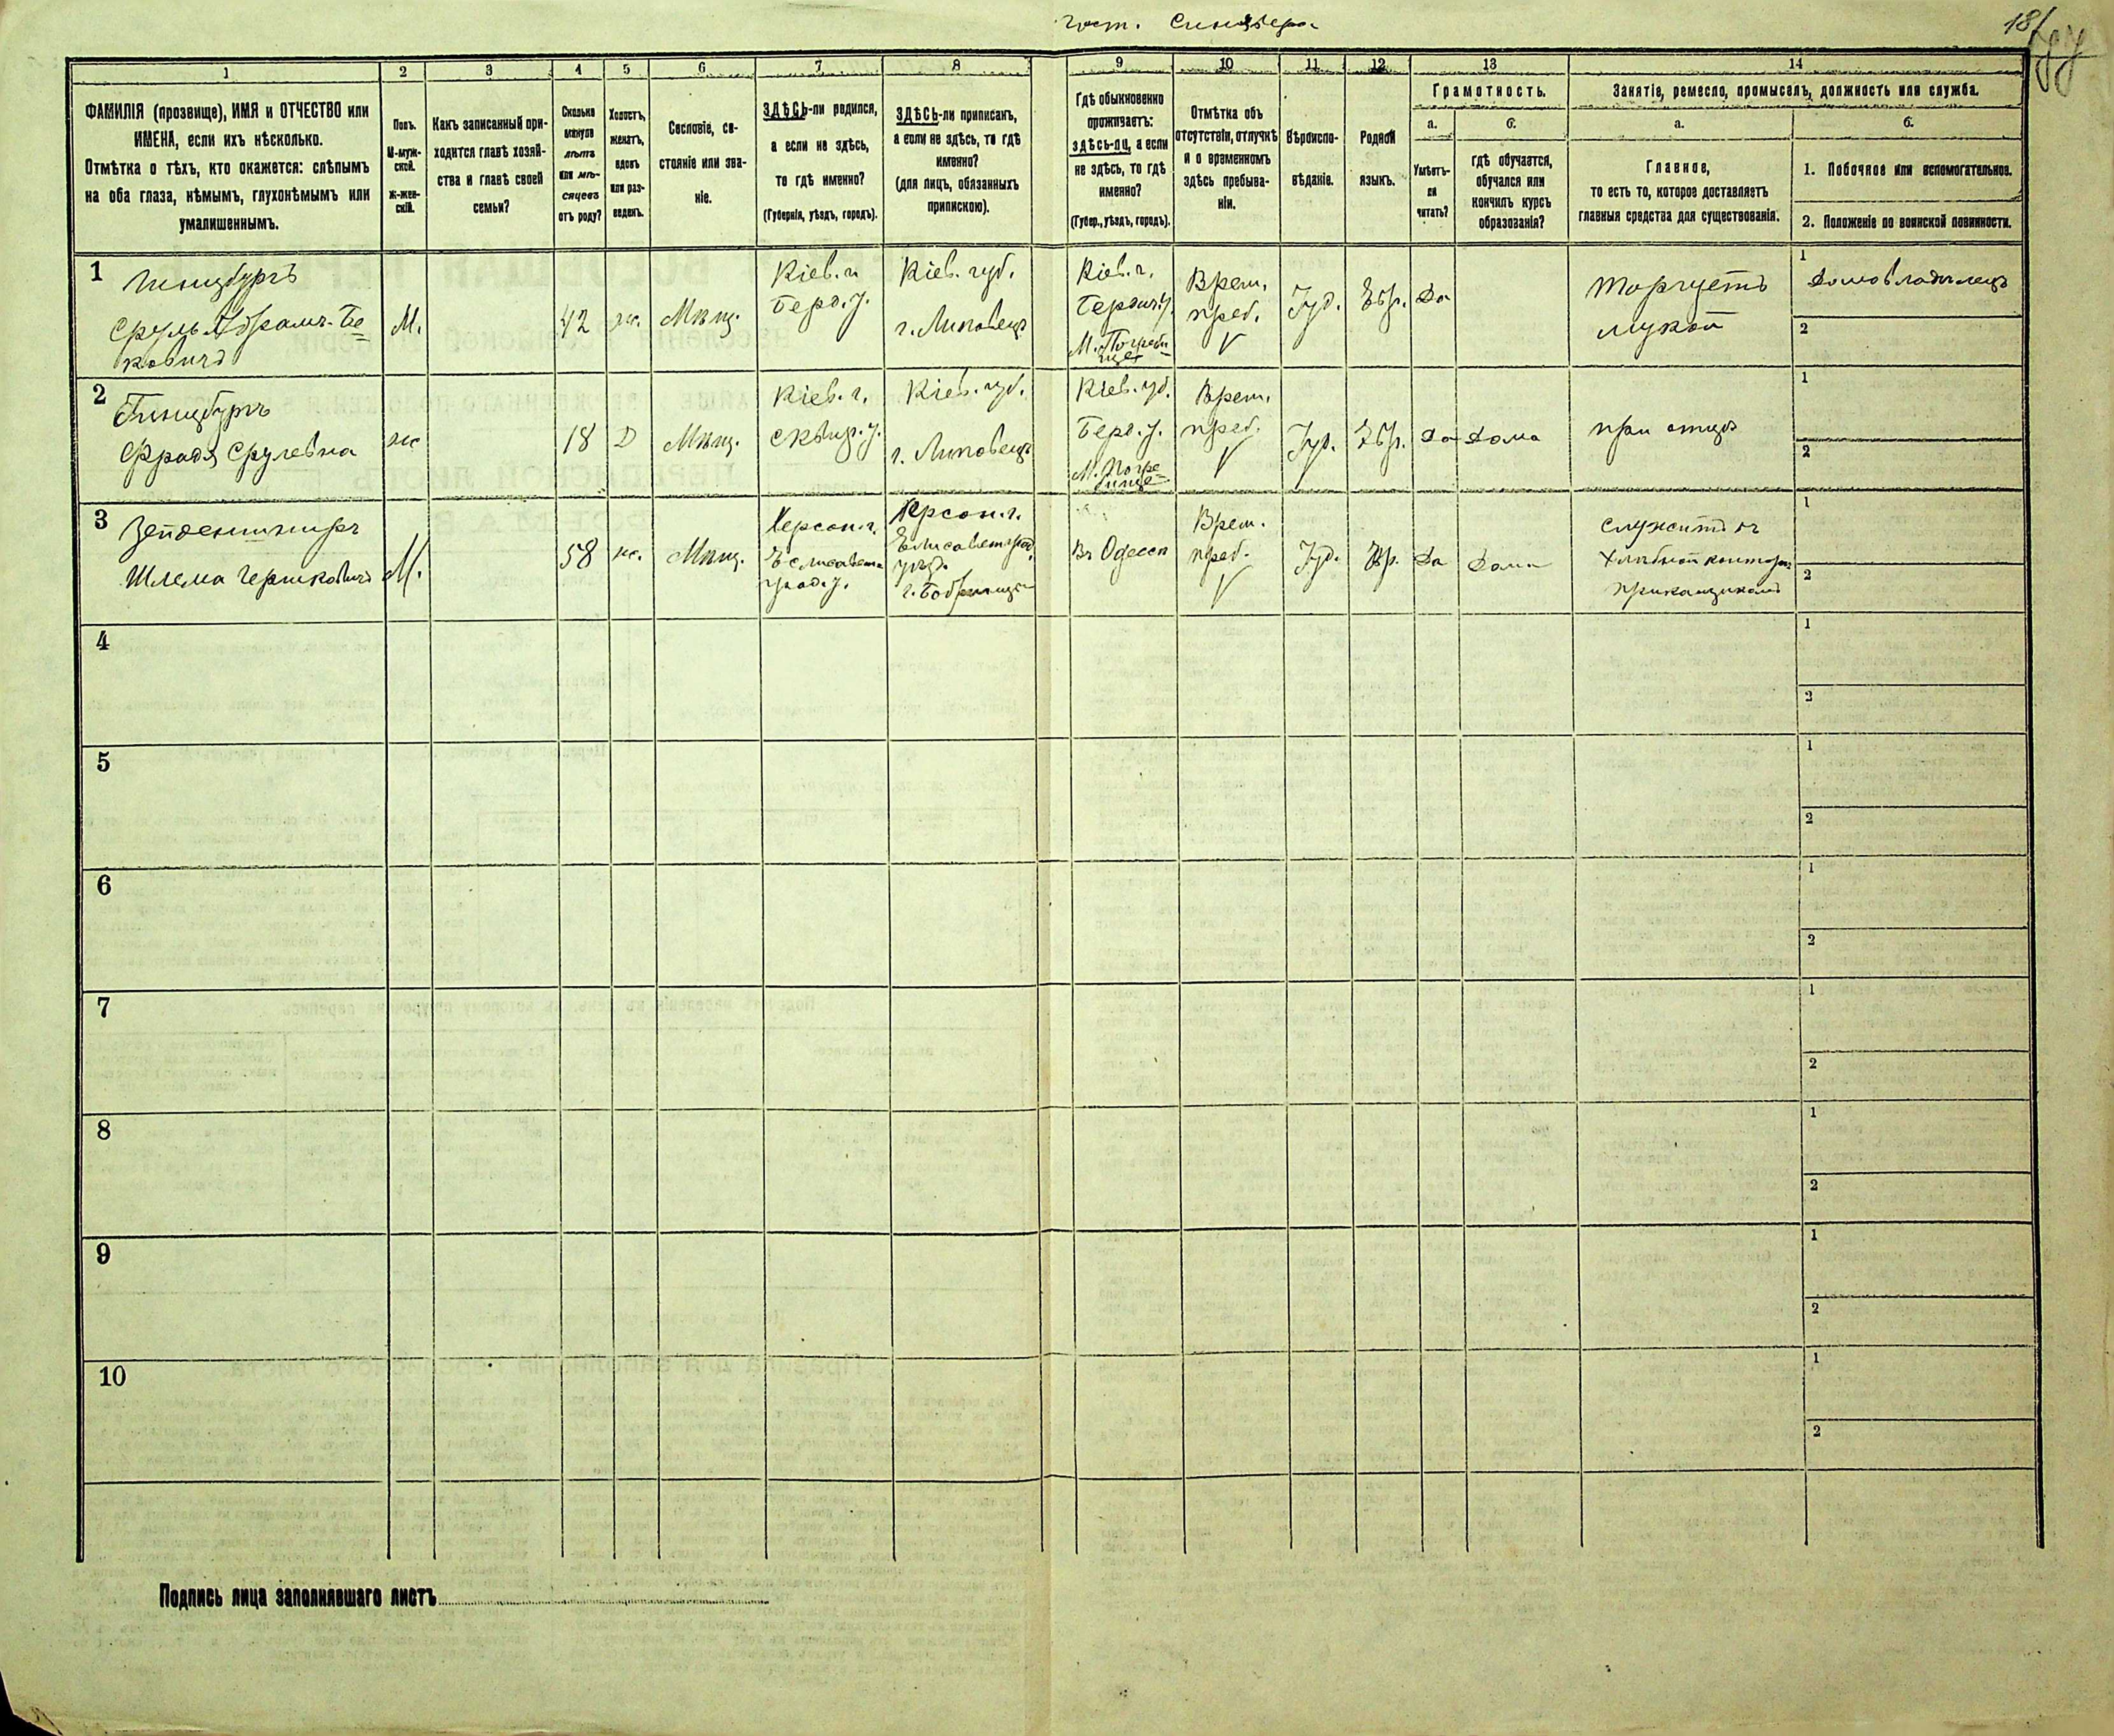 гост. Синцвера
18
1
2
3
4
5
6
7
8
9
10
11
12
13
14
ФАМИЛІЯ (прозвище), ИМЯ и ОТЧЕСТВО или
ИМЕНА, если ихъ нѣсколько.
Отмѣтка о тѣхъ, кто окажется: слѣпымъ
на оба глаза, нѣмымъ, глухонѣмымъ или
умалишеннымъ.
Полъ.
М-муж-
ской.
ж-жен-
скій.
Какъ записанный при-
ходится главѣ хозяй-
ства и главѣ своей
семьи?
Сколько
минуло
лѣтъ
или мѣ-
сяцевъ
отъ роду?
Холостъ,
женатъ,
вдовъ
или раз-
веденъ.
Сословіе, со-
стояніе или зва-
ніе.
ЗДѢСЬ-ли родился,
а если не здѣсь,
то гдѣ именно?
(Губернія, уѣздъ, городъ).
ЗДѢСЬ-ли приписанъ,
а если не здѣсь, то гдѣ
именно?
(для лицъ, обязанныхъ
припискою).
Гдѣ обыкновенно
проживаетъ:
здѣсь-ли, а если
не здѣсь, то гдѣ
именно?
(Губер., уѣздъ, городъ).
Отмѣтка объ
отсутствіи, отлучкѣ
и о временномъ
здѣсь пребыва-
ніи.
Вѣроиспо-
вѣданіе.
Родной
языкъ.
Грамотность.
а.
б.
Умѣетъ-
ли
читать?
гдѣ обучается,
обучался или
кончилъ курсъ
образованія?
Занятіе, ремесло, промыселъ, должность или служба.
а.
б.
Главное,
то есть то, которое доставляетъ
главныя средства для существованія.
1. Побочное или вспомогательное.
2. Положеніе по воинской повинности.
1
Гинцбургъ
Сруль Абрамъ-Бе-
ковичъ
М.
42
ж.
Мѣщ.
Кіев. г.
Берд. у.
Кіев. губ.
г. Липовецъ
Кіев. г.
Бердич. у.
М. Погреби-
ще
Врем.
преб.
V
Іуд.
Евр.
Да
Торгуетъ
мукой
1
Домовладѣлецъ
2
2
Гинцбургъ
Фрадя Срулевна
ж
18
Д
Мѣщ.
Кіев. г.
Сквир. у.
Кіев. губ.
г. Липовецъ
Кіев. губ.
Берд. у.
М. Погре-
бище
Врем.
преб.
V
Іуд.
Евр.
Да
Дома
при отцѣ
1
2
3
Зейденшниръ
Шлема Гершковичъ
М.
58
ж.
Мѣщ.
Херсон. г.
Елисавет-
град. у.
Херсон. г.
Елисаветград.
уѣз.
г. Бобринецъ
Въ Одессѣ
Врем.
преб.
V
Іуд.
Евр.
Да
Дома
служитъ въ
хлѣбной конторѣ
прикащикомъ
1
2
4
1
2
5
1
2
6
1
2
7
1
2
8
1
2
9
1
2
10
1
2
Подпись лица заполнявшаго листъ